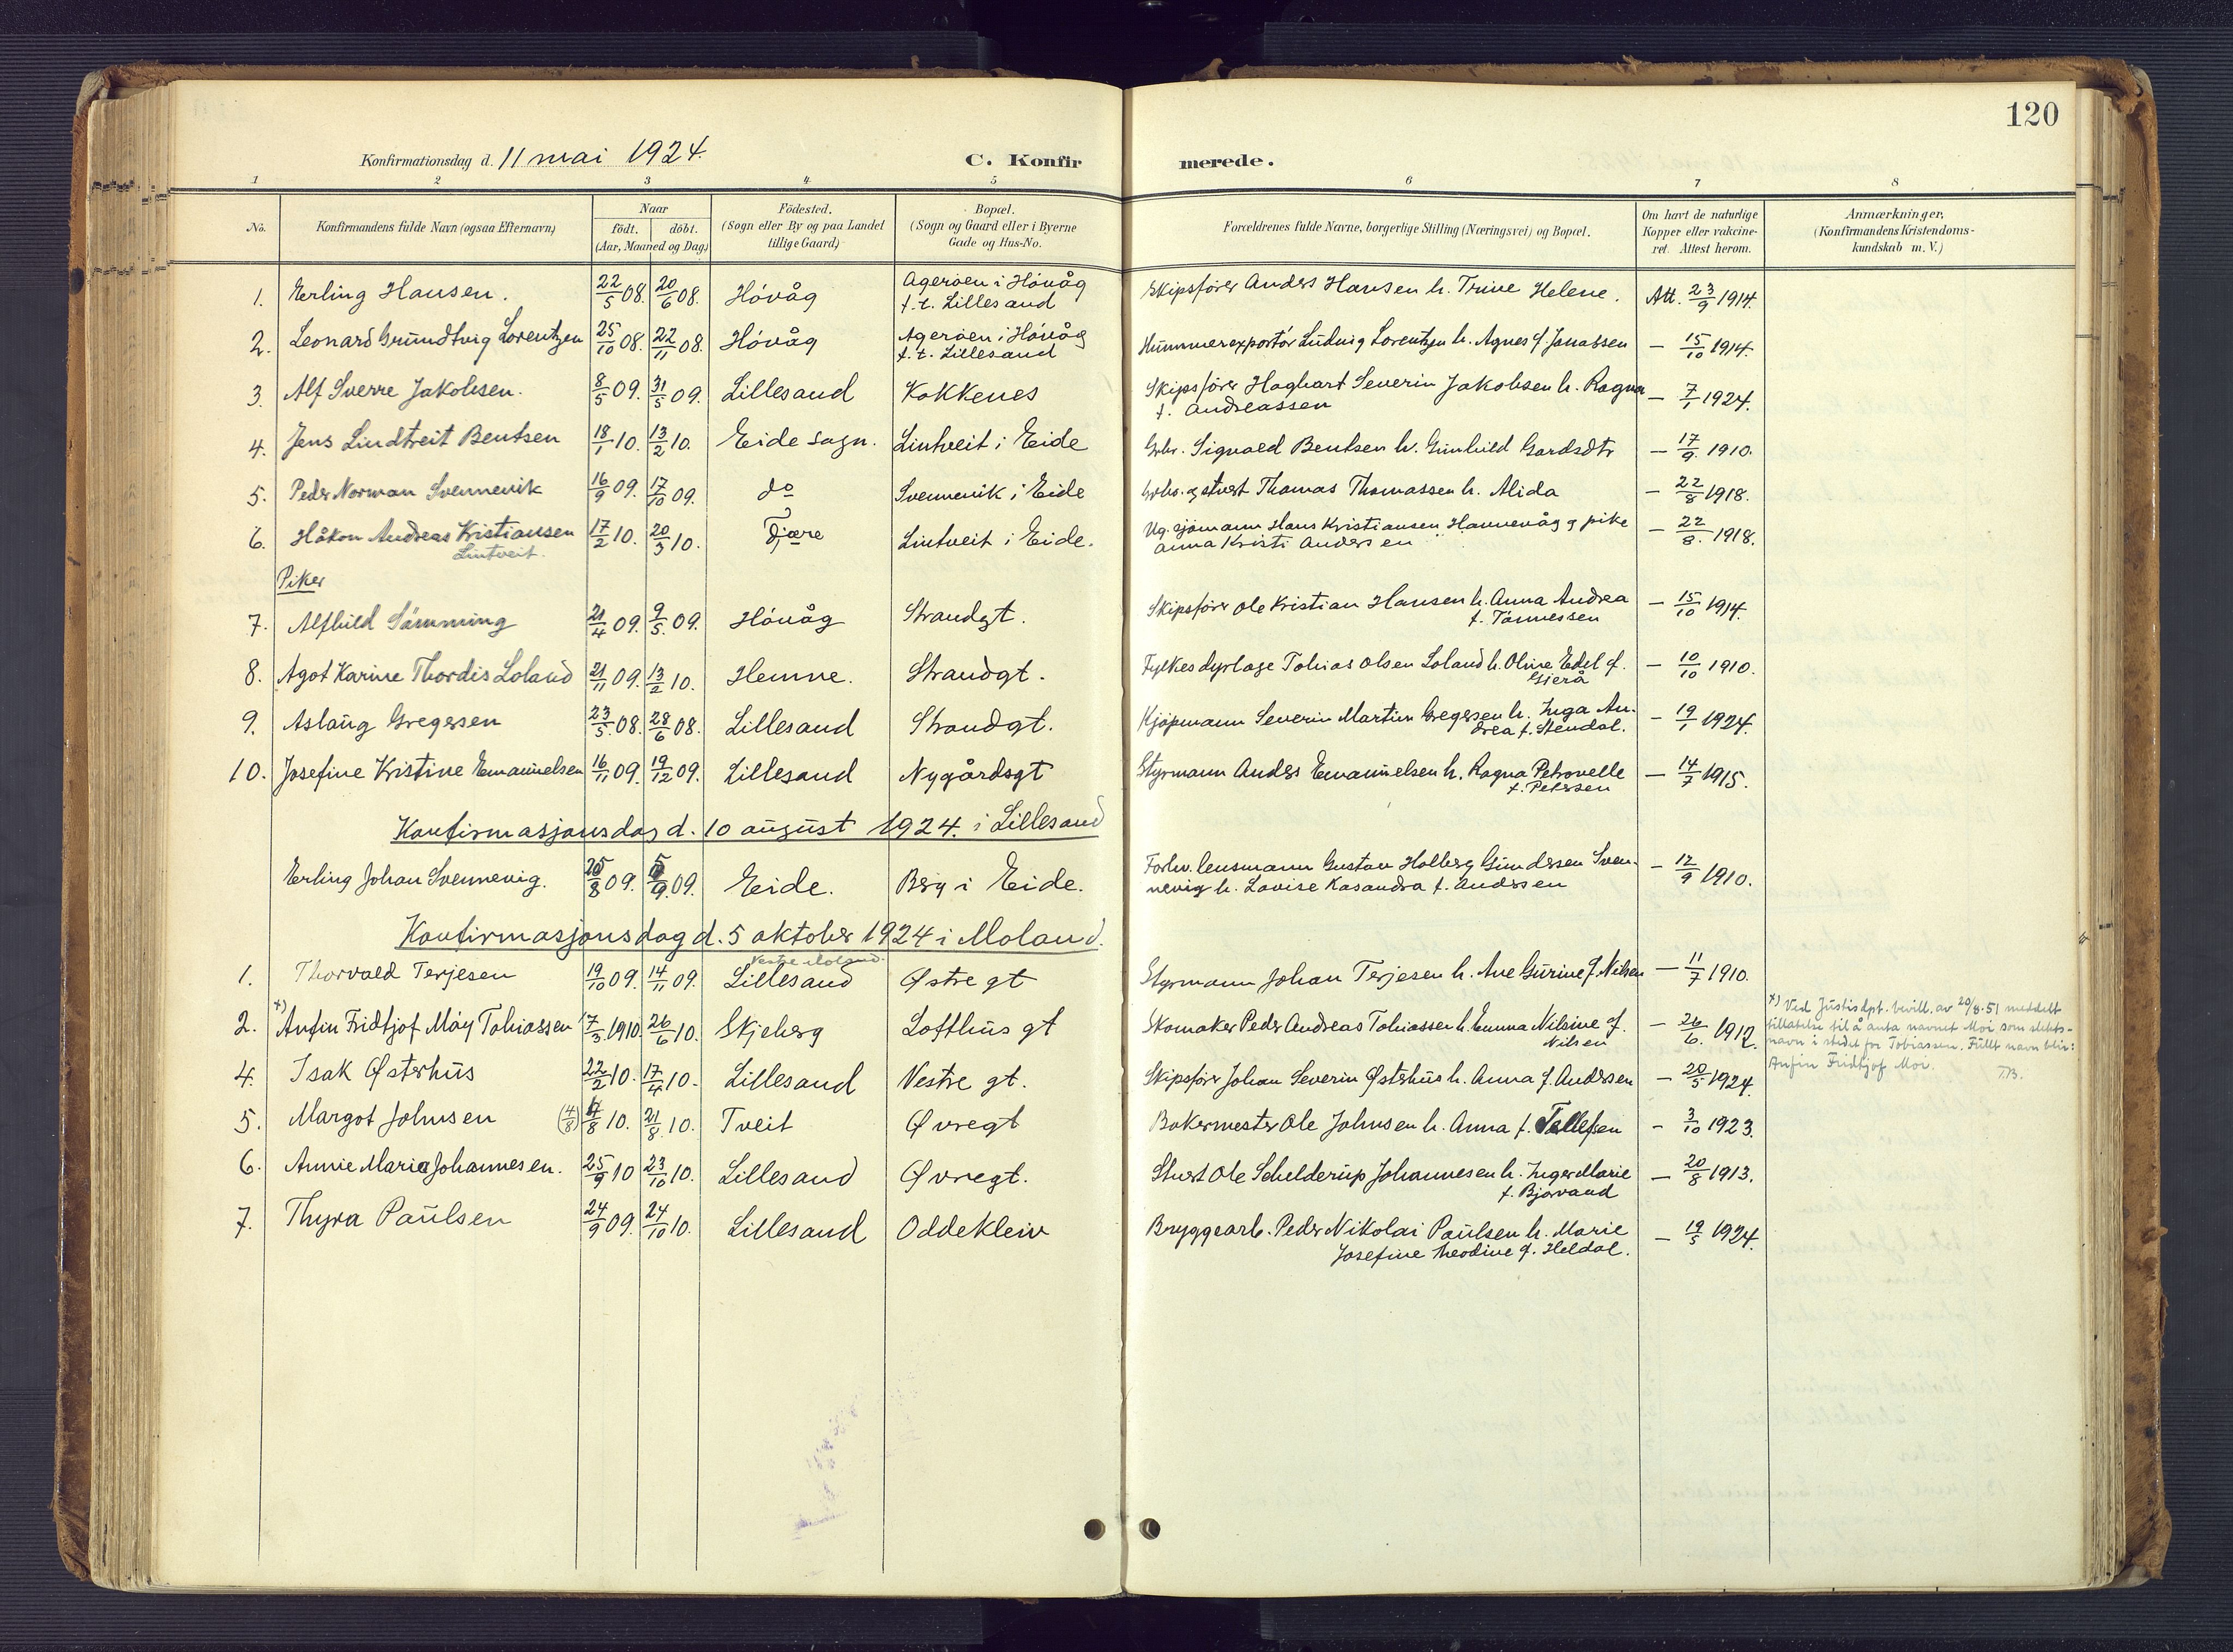 120
Konfirmationsdag d. 11 mai 1924.
C. Konfirmerede.
1 2 3 4 5 6 7 8
No.
Konfirmandens fulde Navn (ogsaa Efternavn)
Naar
födt. döbt.
(Aar, Maaned og Dag)
Födested.
(Sogn eller By og paa Landet
tillige Gaard)
Bopæl.
(Sogn og Gaard eller i Byerne
Gade og Hus-No.
Forældrenes fulde Navne, borgerlige Stilling (Næringsvei) og Bopæl.
Om havt de naturlige
Kopper eller vakcine-
ret. Attest herom.
Anmærkninger.
(Konfirmandens Kristendoms-
kundskab m. V.)
1. Erling Hansen. 22/5 08. 20/6 08. Hövåg Ageröen i Hövåg
f. t. Lillesand
Skipsförer Anders Hansen h. Trine Helene. Att. 23/9 1914.
2. Leonard Grundtvig Lorentzen 25/10 08. 22/11 08. Hövåg Ageröen i Hövåg
f. t. Lillesand
Hummerexportör Ludvig Lorentzen h. Agnes f. Jonassen — 15/10 1914.
3. Alf Sverre Jakobsen. 8/5 09. 31/5 09. Lillesand Kokkenes
Skipsförer Hagbart Severin Jakobsen h. Ragna
f. Andreassen — 7/1 1924.
4. Jens Lindtveit Bentsen 18/1 10. 13/2 10. Eide sogn. Lintveit i Eide
Gbr. Sigvald Bentsen h. Gunhild Gardsdtr — 17/9. 1910.
5. Peder Norman Svennevik 16/9 09. 17/10 09. do Svennevik i Eide
Gbr. og stuert Thomas Thomassen h. Alida — 22/8 1918.
6. Håkon Andreas Kristiansen 17/2 10. 20/3 10. Fjære Lintveit i Eide.
Lintveit.
Ug. sjömann Hans Kristiansen Hannevåg og pike
Anna Kristi Andersen — 22/8. 1918.
Piker
7. Alfhild Sömming 21/4 09. 9/5. 09. Hövåg Strandgt.
Skipsförer Ole Kristian Hansen h. Anna Andrea
f. Tönnessen — 15/10 1914.
8. Agot Karine Thordis Loland 21/11 09. 13/2 10. Hemne. Strandgt.
Fylkesdyrlæge Tobias Olsen Loland h. Oline Edel f.
Gjerå — 10/10 1910.
9. Aslaug Gregersen 23/5. 08. 28/6 08. Lillesand Strandgt.
Kjöpmann Severin Martin Gregersen h. Inga An-
drea f. Stendal. — 19/1 1924.
10. Josefine Kristine Emanuelsen 16/11 09. 19/12 09. Lillesand Nygårdsgt
Styrmann Anders Emanuelsen h. Ragna Petronelle
f. Petersen — 14/7 1915.
Konfirmasjonsdag d. 10 august 1924. i Lillesand
Erling Johan Svennevig. 25/8 09. 5/9. 09. Eide. Berg i Eide.
Forhv. lensmann Gustav Holberg Gundersen Sven-
nevig h. Lovise Kasandra f. Andersen — 12/9 1910.
Konfirmasjonsdag d. 5 oktober 1924 i Moland.
Vestre Moland.
1. Thorvald Terjesen 19/10 09. 14/11 09. Lillesand Østre gt
Styrmann Johan Terjesen h. Ane Gurine f. Nilsen — 11/7 1910.
2. x) Anfin Fridtjof Möy Tobiassen 7/3. 1910. 26/6 10. Skjeberg Lofthus gt
Skomaker Peder Andreas Tobiassen h. Emma Nilsine f.
Nilsen — 26/6. 1912.
x) Ved Justisdpt. bevill. av 20/8. 51 meddelt
tillatelse til å anta navnet Moi som slekts-
navn i stedet for Tobiassen. Fullt navn blir:
Anfin Fridtjof Moi. T.B.
4. Isak Østerhus 22/2 10. 17/4 10. Lillesand Vestre gt.
Skipsförer Johan Severin Østerhus h. Anna f. Andersen — 20/5 1924.
5. Margot Johnsen (4/8) 4/8 10. 21/8. 10. Tveit Øvregt
Bakermester Ole Johnsen h. Anna f. Tellefsen — 3/10 1923.
6. Annie Marie Johannesen. 25/9 10 23/10 10. Lillesand Øvregt.
Stuert Ole Schelderup Johannesen h. Inger Marie
f. Bjorvand — 20/8 1913.
7. Thyra Paulsen 24/9 09. 24/10 10. Lillesand Oddekleiv
Bryggearb. Peder Nikolai Paulsen h. Marie
Josefine Theodine f. Heldal. — 19/5 1924.